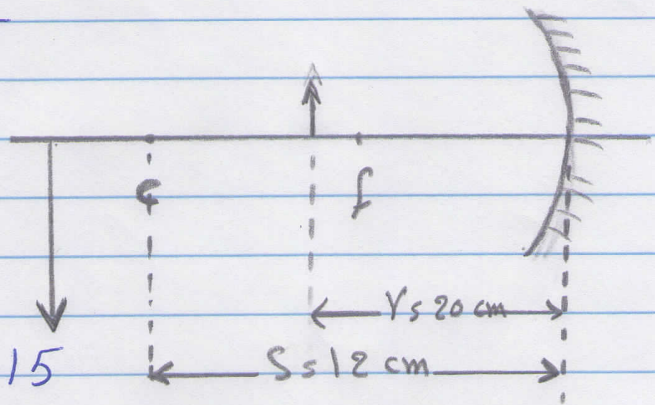 c f
r = 20 cm
15 S = 12 cm